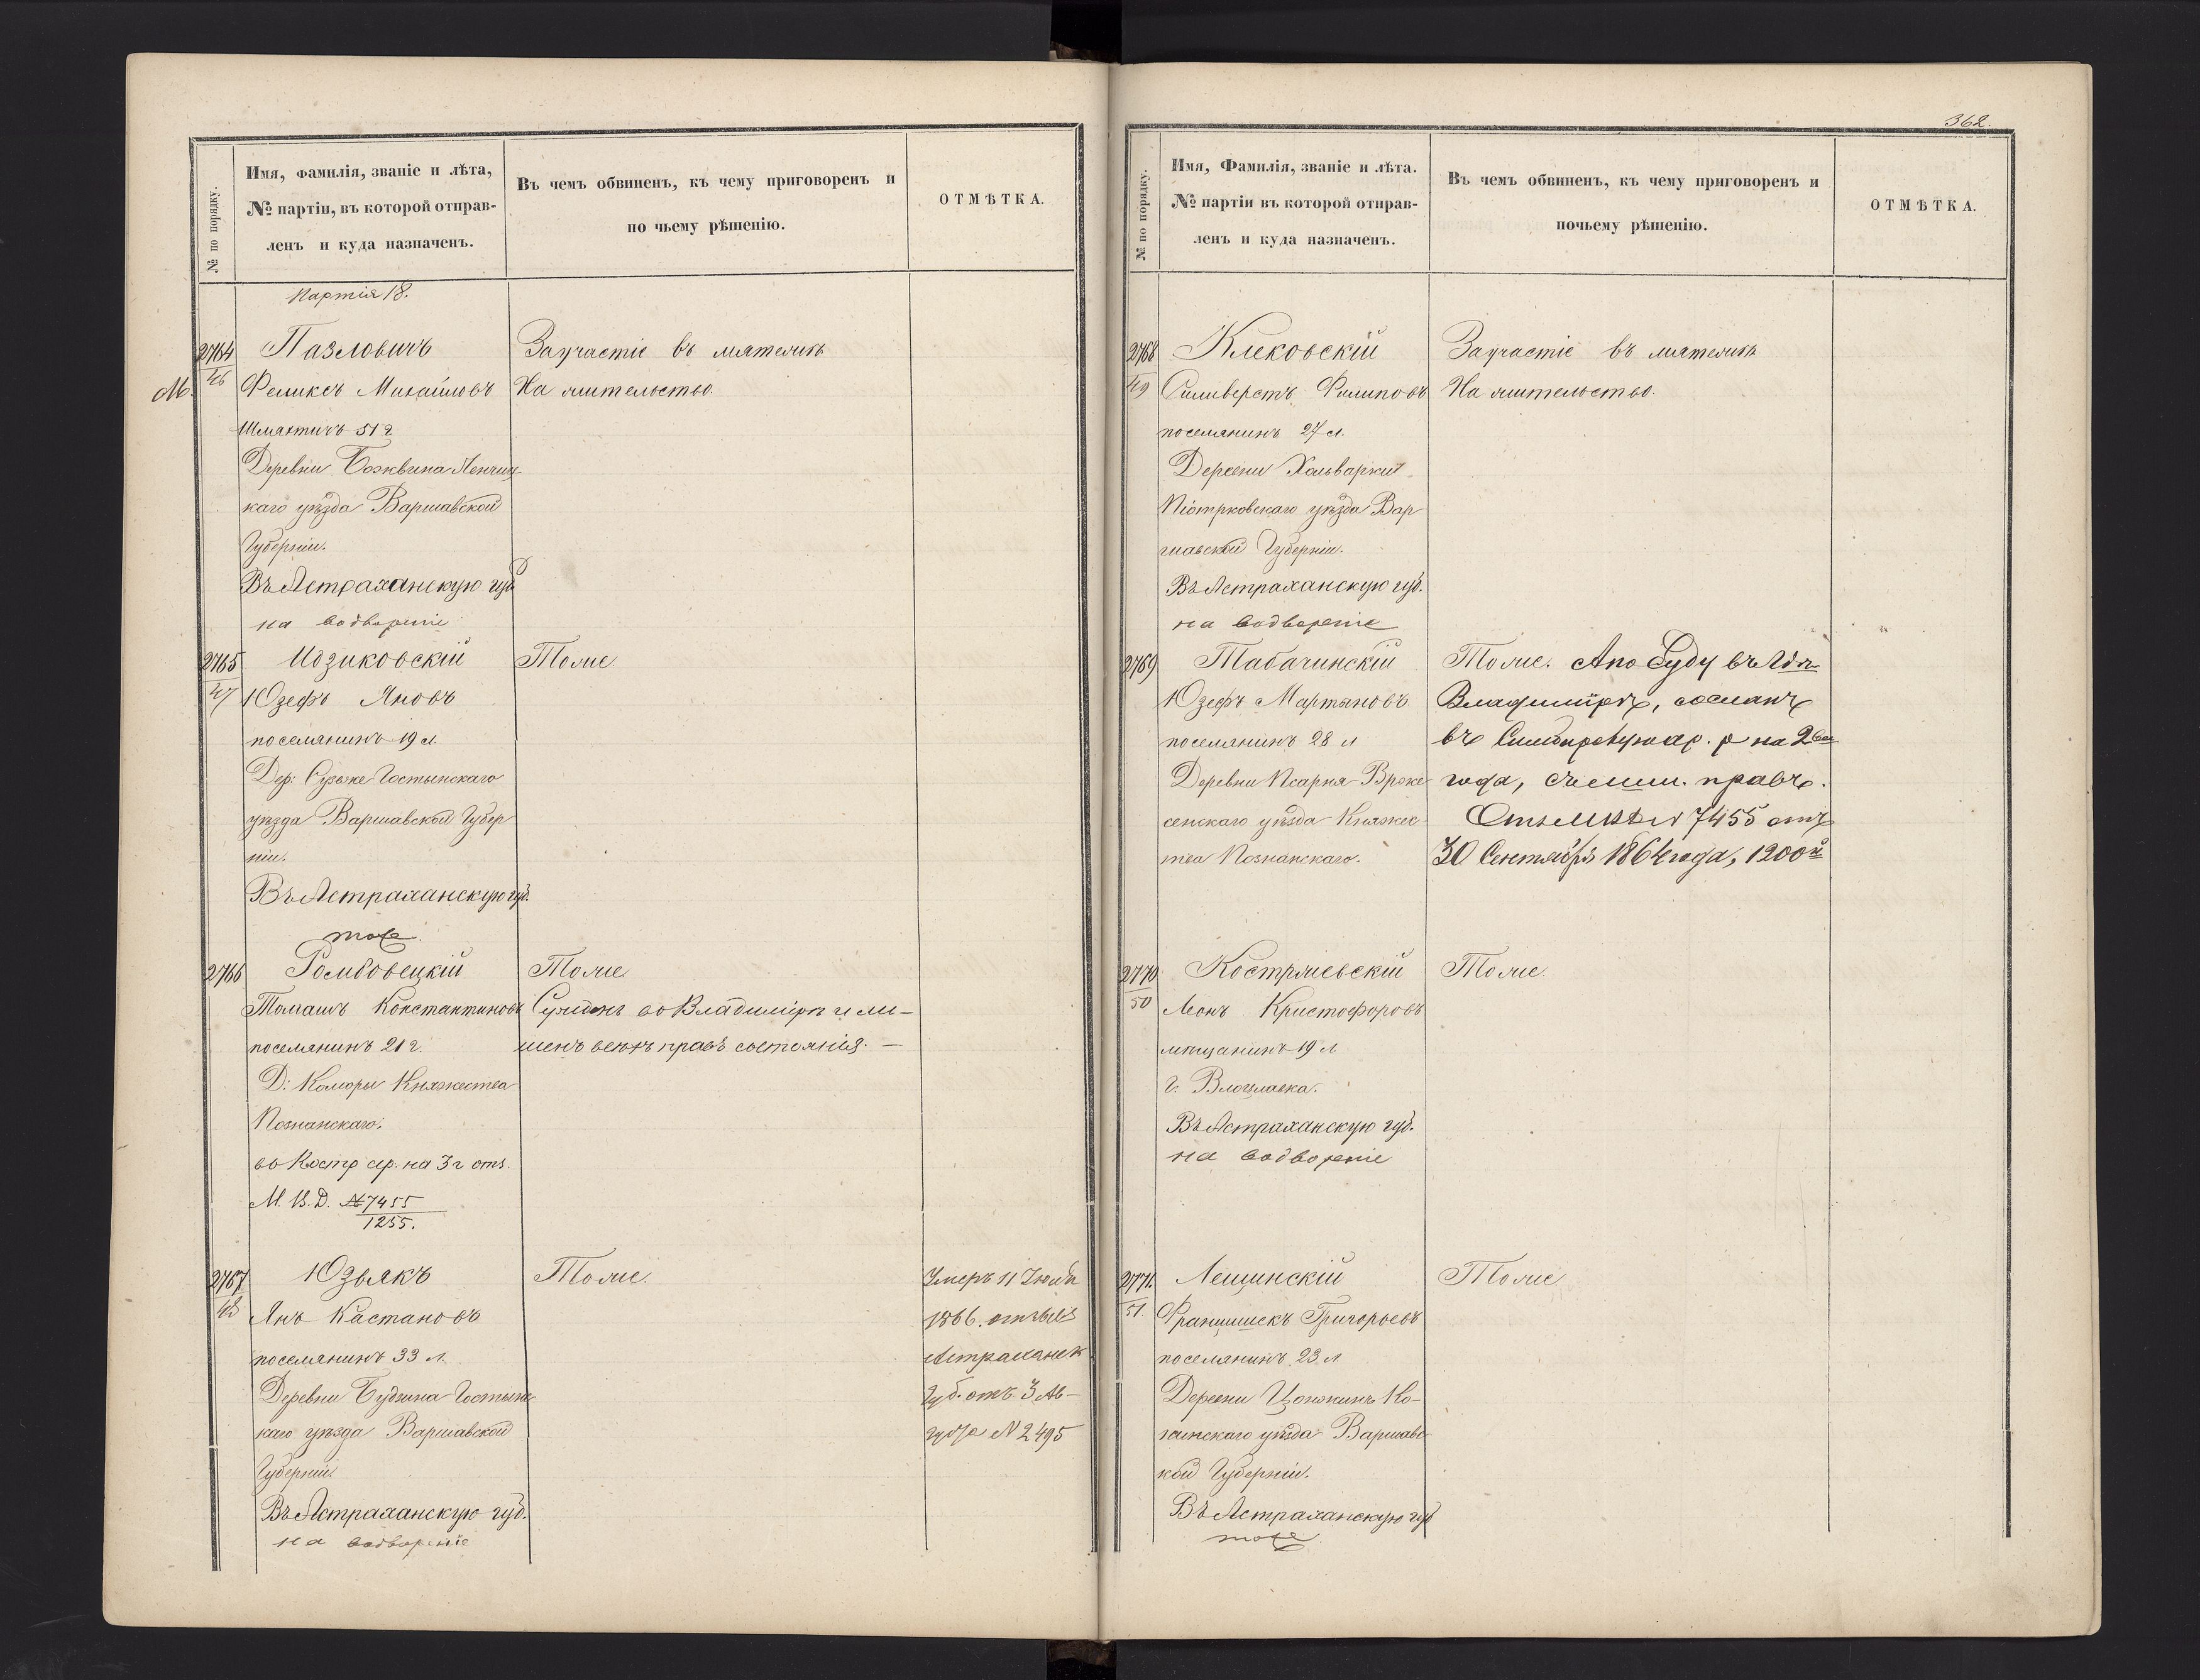 № по порядку.
Имя, фамилія, званіе и лѣта,
№ партіи, въ которой отправ-
ленъ и куда назначенъ.
Въ чемъ обвиненъ, къ чему приговоренъ и
по чьему рѣшенію.
ОТМѢТКА.
Партія 18.
2764
46
М.
Пазловичъ
Феликсъ Михайловъ
Шляхтичъ 51 г
Деревни Божвина Ленчиц-
каго уѣзда Варшавской
Губерніи.
Въ Астраханскую губ
на водвореніе
За участіе въ мятежѣ
На жительство.
2765
47
Идзиковскій
Юзефъ Яновъ
поселянинъ 19 л.
Дер: Гостынскаго
уѣзда Варшавской Губер
ніи.
Въ Астраханскую губ.
тоже
Тоже.
2766
Ромбовецкій
Томашъ Константиновъ
поселянинъ 21 г.
Д: Коморы Княжества
Познанскаго.
въ Костр ар. на 3 г отз.
М. В. Д. № 7455
1255.
Тоже
Сужденъ во Владимірѣ и ли-
шенъ всѣхъ правъ состоянія. —
2767
48
Юзьякъ
Янъ Кастановъ
поселянинъ 33 л.
Деревни Будзина Гостынс
каго уѣзда Варшавской
Губерніи.
Въ Астраханскую губ.
на водвореніе
Тоже.
Умеръ 11 Іюля
1866. отзывъ
Астраханск
Губ. отъ 3 Ав-
густа N 2495
362.
№ по порядку.
Имя, Фамилія, званіе и лѣта.
№ партіи въ которой отправ-
ленъ и куда назначенъ.
Въ чемъ обвиненъ, къ чему приговоренъ и
почьему рѣшенію.
ОТМѢТКА.
2768
49
Клековскій
Силиверстъ Филиповъ
поселянинъ 27 л.
Деревни Хольварки
Піотрковскаго уѣзда Вар
шавской Губерніи.
Въ Астраханскую губ.
на водвореніе
За участіе въ мятежѣ
На жительство.
2769
Табачинскій
Юзефъ Мартыновъ
поселянинъ 28 л
Деревни Псарня Врже
сенскаго уѣзда Княжес-
тва Познанскаго.
Тоже. А по Суду въ
Владимірѣ, сосланъ
въ Симбирскую ар. р на 2
года, съ лиш. правъ.
N 7455 отъ
30 Сентября 1864 года, 1200
2770
50
Костржевскій
Леонъ Кристофоровъ
мѣщанинъ 19 л
г. Влоцлавка.
Въ Астраханскую губ.
на водвореніе
Тоже.
2771.
51.
Лещинскій
Францишекъ Григорьевъ
поселянинъ 23 л
Деревни Цонжинъ Ко-
нинскаго уѣзда Варшавс-
кой Губерніи.
Въ Астраханскую губ
тоже
Тоже